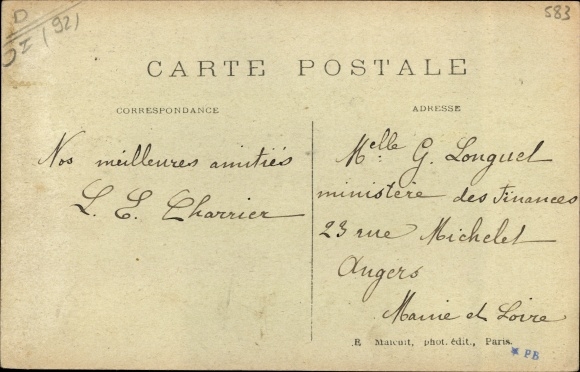 583
(92)
CARTE POSTALE
CORRESPONDANCE
ADRESSE
Nos meilleures amitiés
L. E. Charrier
Melle G. Longuet
ministère des Finances
23 rue Michelet
Angers
Maine et Loire
phot. édit., Paris.
PB